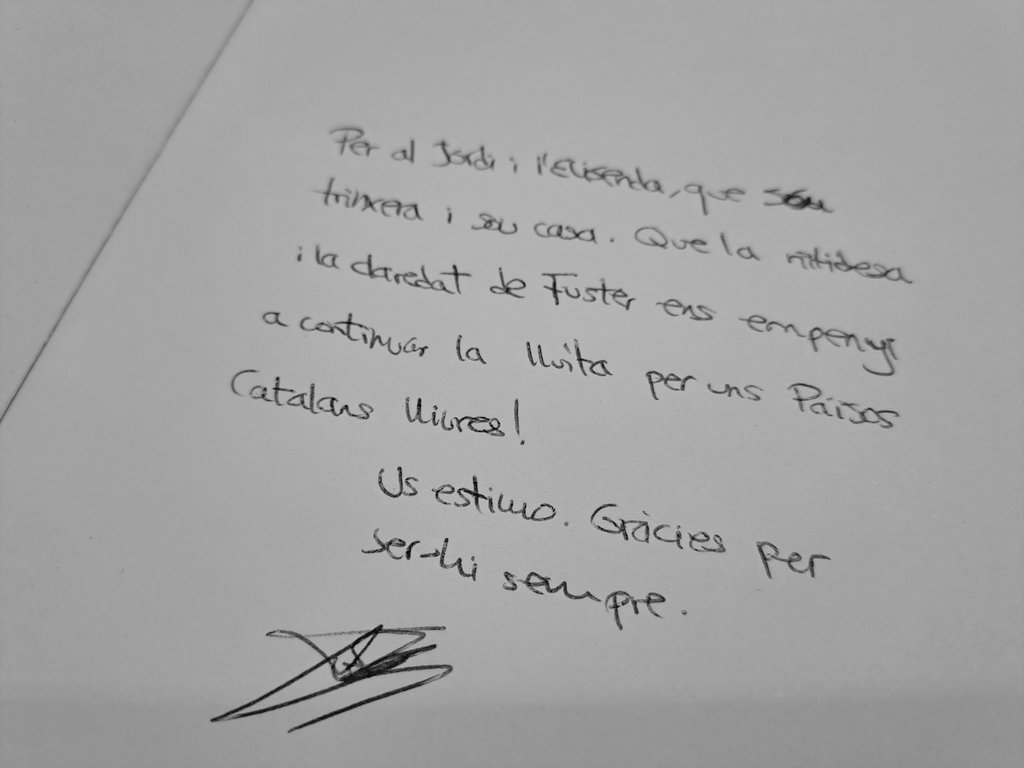 Per al Jordi i l'Elisenda, que sou
trinxera i sou casa. Que la nitidesa
i la claredat de Fuster ens empenyi
a continuar la lluita per uns Països
Catalans lliures!
Us estimo. Gràcies per
ser-hi sempre.